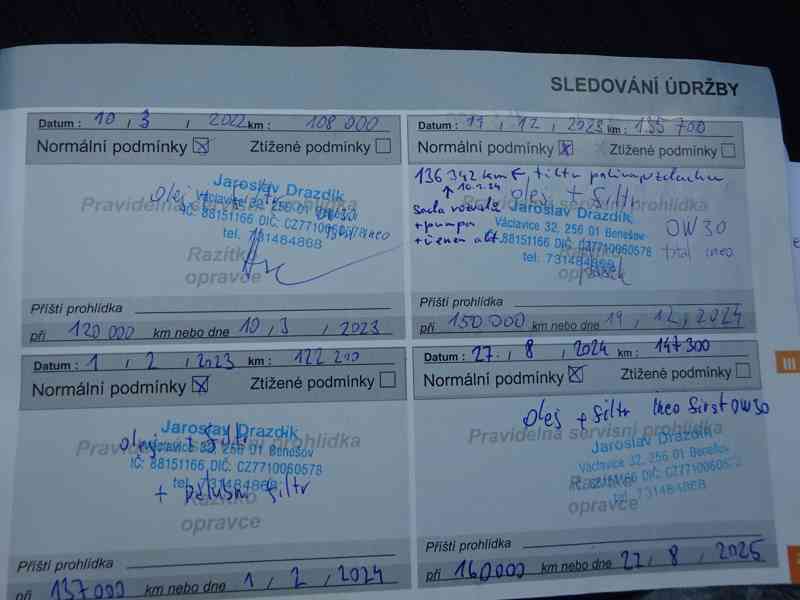 SLEDOVÁNÍ ÚDRŽBY
Datum : 10 / 3 / 2022 km : 108 000
Normální podmínky ☒ Ztížené podmínky ☐
Pravidelná servisní prohlídka
olej + filtr
0W30
ineo
Jaroslav Drazdík
Václavice 32, 256 01 Benešov
IČ: 88151166 DIČ: CZ7710060578
tel. 731484868
Razítko
opravce
Příští prohlídka
při 120 000 km nebo dne 10 / 3 / 2023
Datum : 19 / 12 / 2023 km : 135 700
Normální podmínky ☒ Ztížené podmínky ☐
136 342 km ← filtr paliva, vzduchu
↑ 10.1.24 olej + filtr
sada rozvodů
+ pumpa
+ řemen alt.
0W30
total ineo
Pravidelná servisní prohlídka
Jaroslav Drazdík
Václavice 32, 256 01 Benešov
88151166 DIČ: CZ7710060578
tel. 731484868
Razítko
opravce
Příští prohlídka
při 150 000 km nebo dne 19 / 12 / 2024
Datum : 1 / 2 / 2023 km : 122 200
Normální podmínky ☒ Ztížené podmínky ☐
Pravidelná servisní prohlídka
olej + filtr
Jaroslav Drazdík
Václavice 32, 256 01 Benešov
IČ: 88151166, DIČ: CZ7710060578
tel. 731484868
+ filtr
Razítko
opravce
Příští prohlídka
při 137 000 km nebo dne 1 / 2 / 2024
Datum : 27. / 8 / 2024 km : 147 300
Normální podmínky ☒ Ztížené podmínky ☐
olej + filtr ineo first 0W30
Pravidelná servisní prohlídka
Jaroslav Drazdík
Václavice 32, 256 01 Benešov
IČ: 88151166, DIČ: CZ7710060578
tel. 731484868
Razítko
opravce
Příští prohlídka
při 160000 km nebo dne 27 / 8 / 2025
III